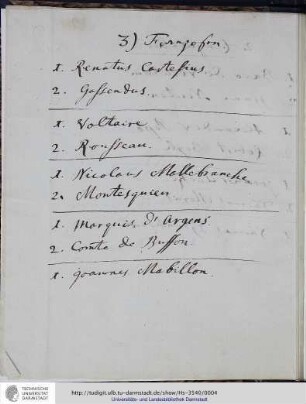 3) Franzosen
1. Renatus Cartesius
2. Gassendus.
1. Voltaire
2. Rousseau.
1. Nicolaus Mallebranche
2. Montesquieu
1. Marquis d'Argens
2. Comte de Buffon.
1. Joannes Mabillon.
TECHNISCHE
UNIVERSITÄT
DARMSTADT
http://tudigit.ulb.tu-darmstadt.de/show/Hs-3540/0004
Universitäts- und Landesbibliothek Darmstadt